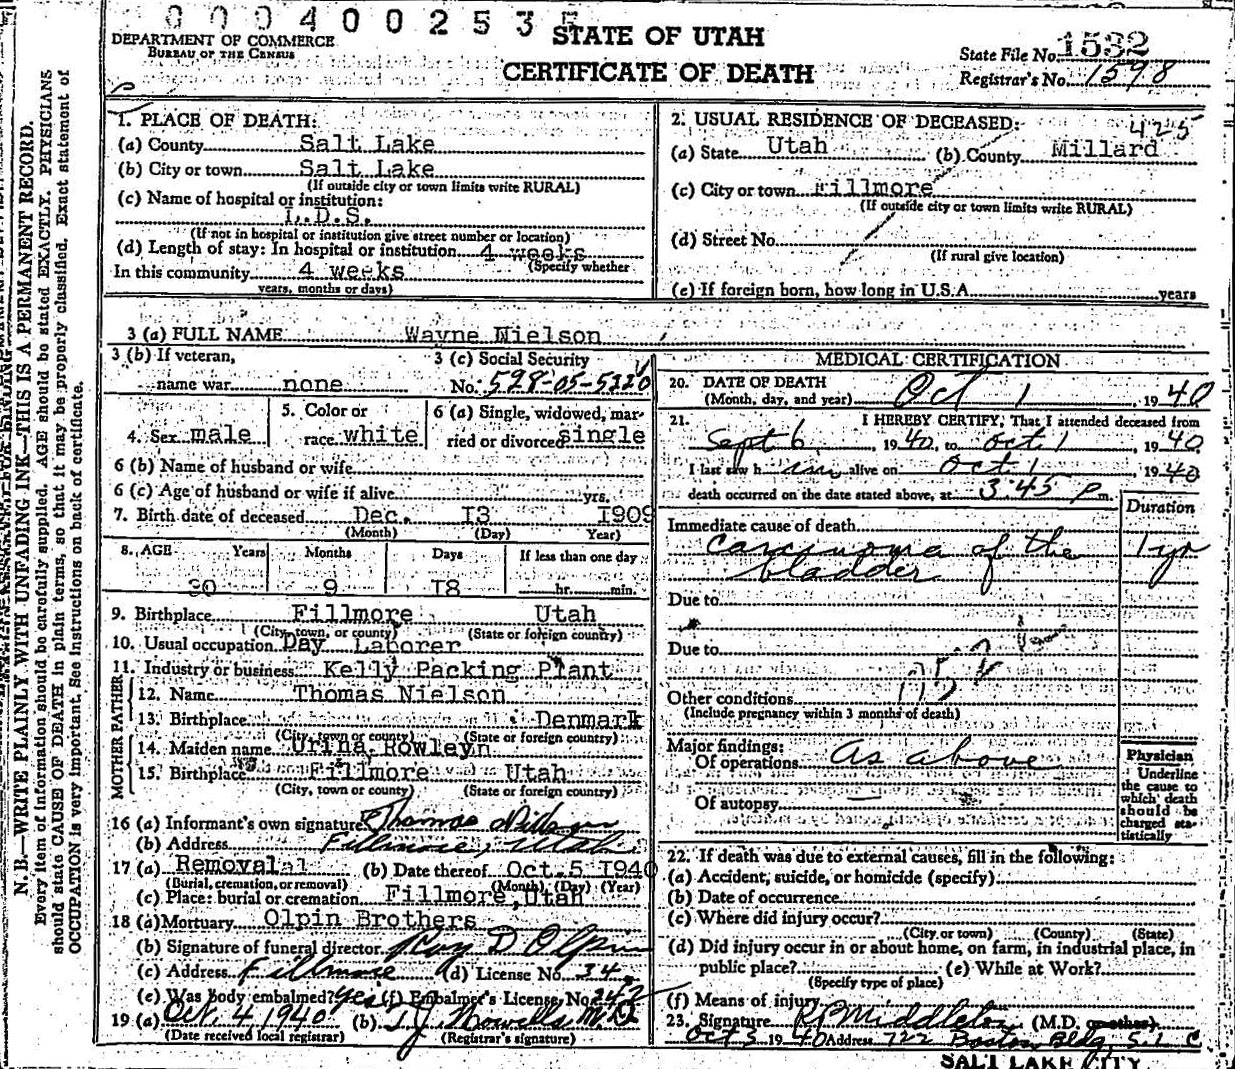 0 0 0 4 0 0 2 5 3
DEPARTMENT OF COMMERCE
BUREAU OF THE CENSUS
STATE OF UTAH
CERTIFICATE OF DEATH
State File No. 1532
Registrar's No. 1598
N. B.—WRITE PLAINLY WITH UNFADING INK—THIS IS A PERMANENT RECORD.
Every item of information should be carefully supplied. AGE should be stated EXACTLY. PHYSICIANS
should state CAUSE OF DEATH in plain terms, so that it may be properly classified. Exact statement of
OCCUPATION is very important. See instructions on back of certificate.
1. PLACE OF DEATH:
(a) County Salt Lake
(b) City or town Salt Lake
(If outside city or town limits write RURAL)
(c) Name of hospital or institution:
L.D.S.
(If not in hospital or institution give street number or location)
(d) Length of stay: In hospital or institution 4 weeks
(Specify whether
In this community 4 weeks
years, months or days)
2. USUAL RESIDENCE OF DECEASED: 425
(a) State Utah (b) County Millard
(c) City or town Fillmore
(If outside city or town limits write RURAL)
(d) Street No.
(If rural give location)
(e) If foreign born, how long in U.S.A. years
3 (a) FULL NAME Wayne Nielson
3 (b) If veteran,
name war none
3 (c) Social Security
No. 528-05-5320
4. Sex male
5. Color or
race white
6 (a) Single, widowed, mar-
ried or divorced single
6 (b) Name of husband or wife
6 (c) Age of husband or wife if alive yrs.
7. Birth date of deceased Dec. 13 1909
(Month) (Day) Year)
8. AGE Years Months Days If less than one day
30 9 18 hr. min.
9. Birthplace Fillmore Utah
(City, town, or county) (State or foreign country)
10. Usual occupation Day Laborer
11. Industry or business Kelly Packing Plant
FATHER
12. Name Thomas Nielson
13. Birthplace Denmark
(City, town or county) (State or foreign country)
MOTHER
14. Maiden name Urina Rowleyn
15. Birthplace Fillmore Utah
(City, town or county) (State or foreign country)
16 (a) Informant's own signature Thomas Nielson
(b) Address Fillmore, Utah
17 (a) Removalal (b) Date thereof Oct. 5 1940
(Burial, cremation, or removal) (Month) (Day) (Year)
(c) Place: burial or cremation Fillmore, Utah
18 (a) Mortuary Olpin Brothers
(b) Signature of funeral director Roy D Olpin
(c) Address Fillmore (d) License No. 34
(e) Was body embalmed? yes (f) Embalmer's License No. 242
19 (a) Oct. 4 1940 (b) T J Howells M.D.
(Date received local registrar) (Registrar's signature)
MEDICAL CERTIFICATION
20. DATE OF DEATH
(Month, day, and year) Oct 1, 1940
21. I HEREBY CERTIFY, That I attended deceased from
Sept 6, 1940, to Oct. 1, 1940
I last saw him alive on Oct. 1 1940
death occurred on the date stated above, at 3:45 P m.
Duration
Immediate cause of death
Carcinoma of the 1 yr
bladder
Due to
Due to
052
Other conditions
(Include pregnancy within 3 months of death)
Major findings:
Of operations As above
Of autopsy
Physician
Underline
the cause to
which death
should be
charged sta-
tistically
22. If death was due to external causes, fill in the following:
(a) Accident, suicide, or homicide (specify)
(b) Date of occurrence
(c) Where did injury occur?
(City or town) (County) (State)
(d) Did injury occur in or about home, on farm, in industrial place, in
public place? (e) While at Work?
(Specify type of place)
(f) Means of injury
23. Signature R P Middleton (M.D. or other)
Oct 3 1940 Address 722 Boston Bldg. S. L. C
SALT LAKE CITY